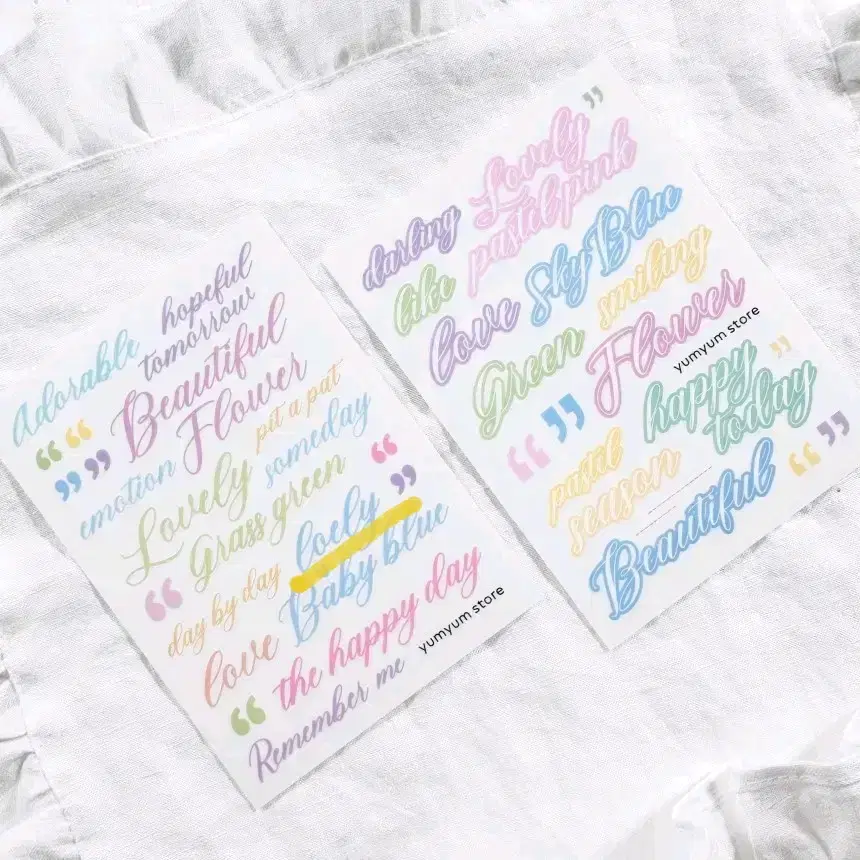 Adorable hopeful
tomorrow
Beautiful
Flower
pit a pat
emotion
someday
Lovely
Grass green
loely
day by day
Baby blue
love
the happy day
Remember me
yumyum store
Lovely
darling
pastel pink
like
Sky Blue
love
smiling
Green
Flower
yumyum store
happy
today
pastel
season
Beautiful